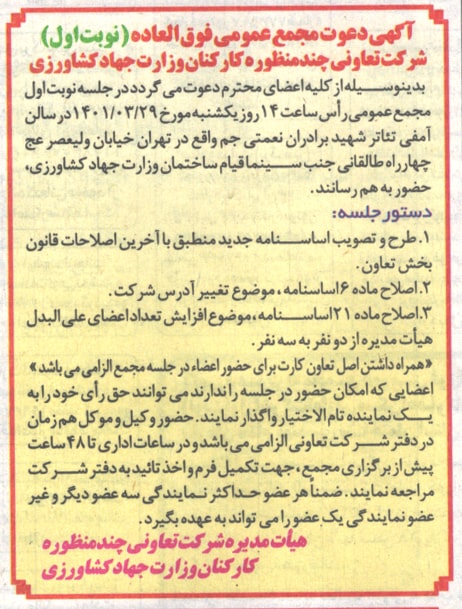 آگهی دعوت مجمع عمومی فوق العاده (نوبت اول)
شرکت تعاونی چند منظوره کارکنان وزارت جهاد کشاورزی
بدینوسیله از کلیه اعضای محترم دعوت می گردد در جلسه نوبت اول
مجمع عمومی رأس ساعت ۱۴ روز یکشنبه مورخ ۱۴۰۱/۰۳/۲۹ در سالن
آمفی تئاتر شهید برادران نعمتی جم واقع در تهران خیابان ولیعصر عج
چهارراه طالقانی جنب سینما قیام ساختمان وزارت جهاد کشاورزی،
حضور به هم رسانند.
دستور جلسه:
۱. طرح و تصویب اساسنامه جدید منطبق با آخرین اصلاحات قانون
بخش تعاون.
۲. اصلاح ماده ۶ اساسنامه، موضوع تغییر آدرس شرکت.
۳. اصلاح ماده ۲۱ اساسنامه، موضوع افزایش تعداد اعضای علی البدل
هیأت مدیره از دو نفر به سه نفر.
«همراه داشتن اصل تعاون کارت برای حضور اعضاء در جلسه مجمع الزامی می باشد»
اعضایی که امکان حضور در جلسه را ندارند می توانند حق رأی خود را به
یک نماینده تام الاختیار واگذار نمایند. حضور وکیل و موکل هم زمان
در دفتر شرکت تعاونی الزامی می باشد و در ساعات اداری تا ۴۸ ساعت
پیش از برگزاری مجمع، جهت تکمیل فرم و اخذ تائید به دفتر شرکت
مراجعه نمایند. ضمناً هر عضو حداکثر نمایندگی سه عضو دیگر و غیر
عضو نمایندگی یک عضو را می تواند به عهده بگیرد.
هیأت مدیره شرکت تعاونی چند منظوره
کارکنان وزارت جهاد کشاورزی